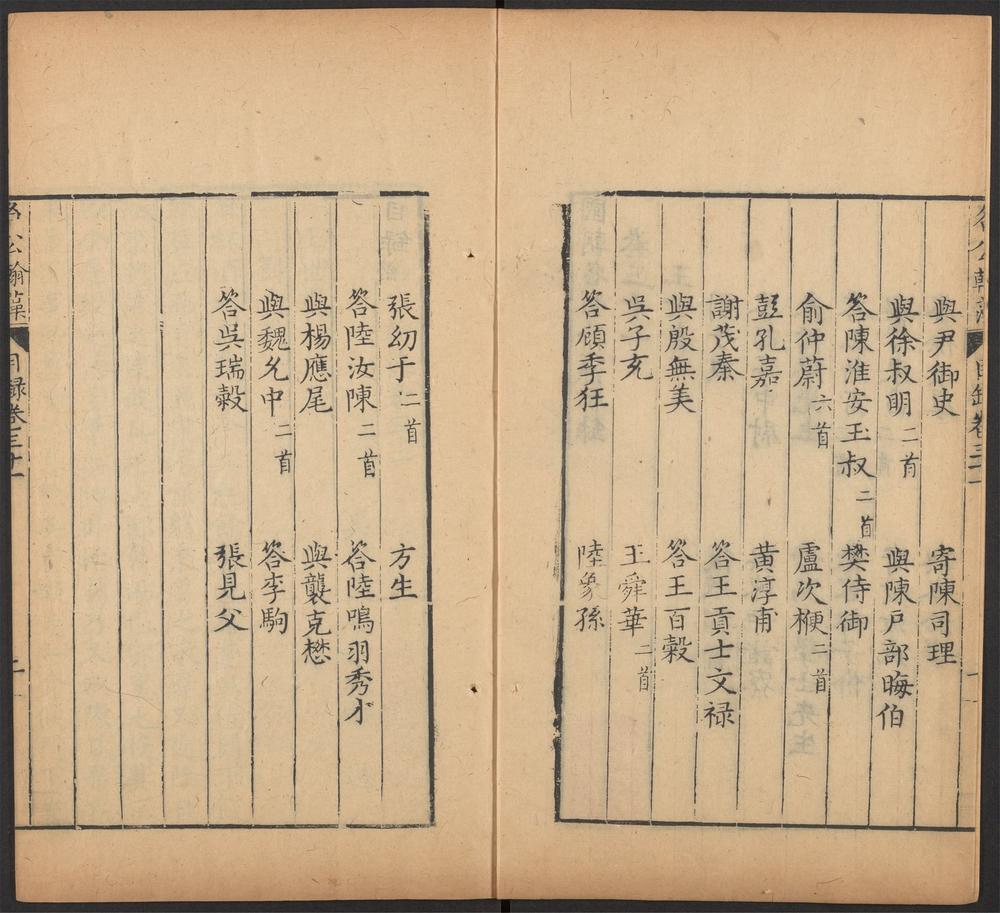 與尹御史　寄陳司理
與徐叔明二首　與陳戶部晦伯
答陳淮安玉叔二首　樊侍御
俞仲蔚六首　盧次楩二首
彭孔嘉　黄淳甫
謝茂秦　答王貢士文祿
與殷無美　答王百穀
吳子充　王舜華二首
答顧季狂　陸象孫
張幼于二首　方生
答陸汝陳二首　答陸鳴羽秀才
與楊應尾　與龔克懋
與魏允中二首　答李駒
答吳瑞穀　張見父
公翰藻　目録卷三十一